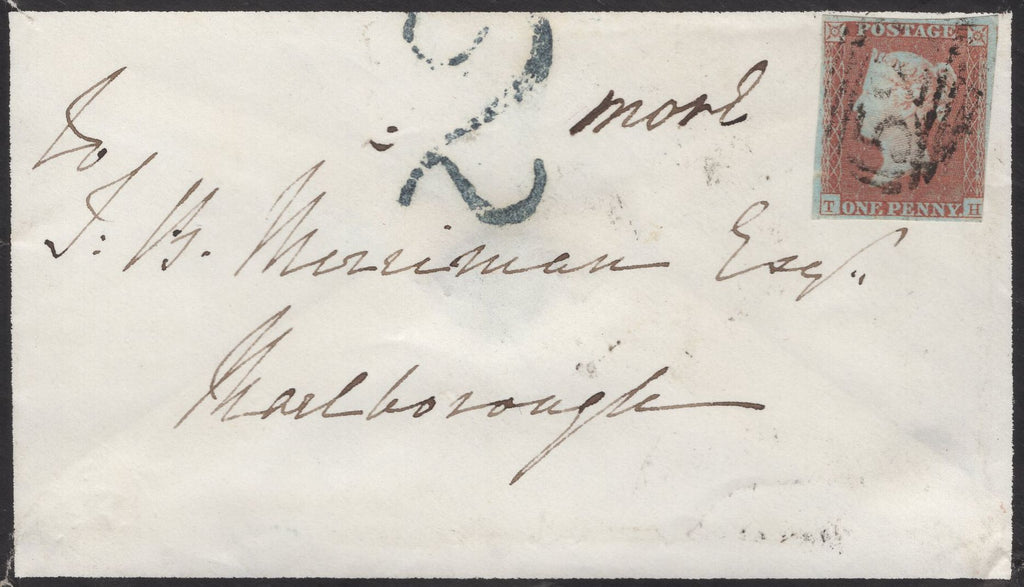 2
more
POSTAGE
To,
T H
ONE PENNY
T. B. Merriman Esq.
Marlborough